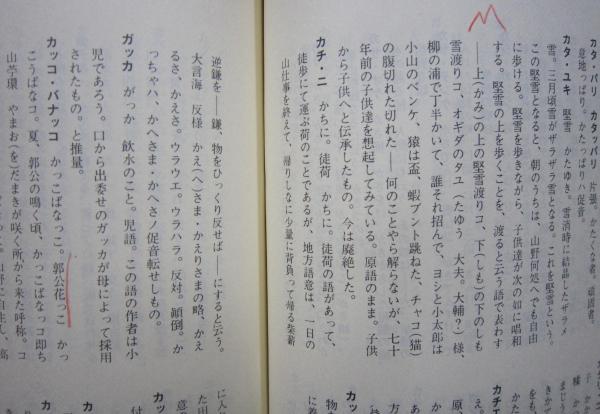 カタ・パリ カタッパリ　片張。かたくな者。頑固者。
意地っぱり。かたっぱりハ促音。
カタ・ユキ　堅雪　かたゆき。雪消時に結晶したザラメ
雪。三月頃雪がザラザラ雪となる。これを堅雪という。
この堅雪となると、朝のうちは、山野何処へでも自由
に歩ける。堅雪を歩きながら、子供達が次の如に唱和
する。堅雪の上を歩くことを、渡ると云う語で表わす
——上(かみ)の上の堅雪渡りコ、下(しも)の下のしも
雪渡リコ、オギダのタユ(たゆう　大夫。大輔？)様、
柳の浦で丁半かいて、誰それ招んで、ヨシと小太郎は
小山のベンケ、猿は盃、蝦プント跳ねた、チャコ(猫)
の腹切れた切れた——何のことやら解らないが、七十
年前の子供達を想起してみている。原語のまま。子供
から子供へと伝承したもの。今は廃絶した。
カチ・ニ　かちに。徒荷　かちに。徒荷の語があって、
徒歩にて運ぶ荷のことであるが、地方語意は、一日の
山仕事を終えて、帰りしなに少量に背負って帰る柴薪
逆鎌を——鎌、物をひっくり反せば——にすると云う。
大言海　反様　かえ(へ)さま・かえりさまの略、かえ
るさ、かえさ。ウラウエ。ウラハラ。反対。顚倒。か
っちゃハ、かへさま・かへさノ促音転せしもの。
ガッカ　がっか　飲水のこと。児語。この語の作者は小
児であろう。口から出委せのガッカが母によって採用
されたもの。と推量。
カッコ・バナッコ　かっこばなっこ。郭公花っこ　かっ
こうばなコ。夏、郭公の鳴く頃、かっこばなっコ即ち
山苧環　やまお(を)だまきが咲く所から来た呼称。コ